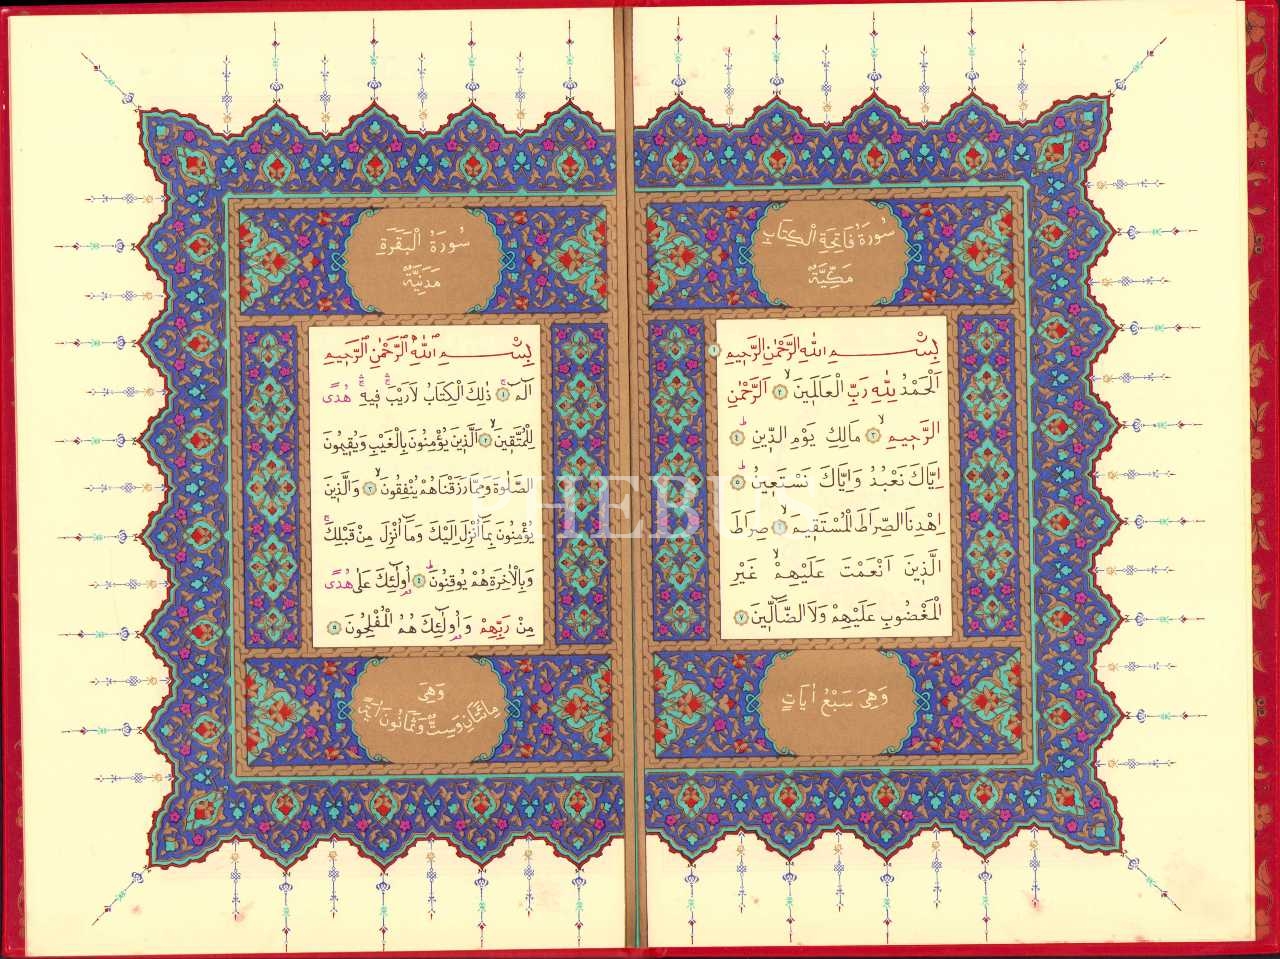 سُورَةُ فَاتِحَةِ الْكِتَابِ
مَكِّيَّةٌ
بِسْمِ اللّٰهِ الرَّحْمٰنِ الرَّحِيمِ ١
اَلْحَمْدُ لِلّٰهِ رَبِّ الْعَالَمِينَ ٢ اَلرَّحْمٰنِ
الرَّحِيمِ ٣ مَالِكِ يَوْمِ الدِّينِ ٤
اِيَّاكَ نَعْبُدُ وَاِيَّاكَ نَسْتَعِينُ ٥
اِهْدِنَا الصِّرَاطَ الْمُسْتَقِيمَ ٦ صِرَاطَ
الَّذِينَ اَنْعَمْتَ عَلَيْهِمْ غَيْرِ
الْمَغْضُوبِ عَلَيْهِمْ وَلَا الضَّٓالِّينَ ٧
وَهِيَ سَبْعُ اٰيَاتٍ
سُورَةُ الْبَقَرَةِ
مَدَنِيَّةٌ
بِسْمِ اللّٰهِ الرَّحْمٰنِ الرَّحِيمِ
الٓمٓ ١ ذٰلِكَ الْكِتَابُ لَا رَيْبَ فِيهِ هُدًى
لِلْمُتَّقِينَ ٢ اَلَّذِينَ يُؤْمِنُونَ بِالْغَيْبِ وَيُقِيمُونَ
الصَّلٰوةَ وَمِمَّا رَزَقْنَاهُمْ يُنْفِقُونَ ٣ وَالَّذِينَ
يُؤْمِنُونَ بِمَٓا اُنْزِلَ اِلَيْكَ وَمَٓا اُنْزِلَ مِنْ قَبْلِكَ
وَبِالْاٰخِرَةِ هُمْ يُوقِنُونَ ٤ اُو۬لٰٓئِكَ عَلٰى هُدًى
مِنْ رَبِّهِمْ وَاُو۬لٰٓئِكَ هُمُ الْمُفْلِحُونَ ٥
وَهِيَ
مِائَتَانِ وَسِتٌّ وَثَمَانُونَ اٰيَةً
PHEBUS